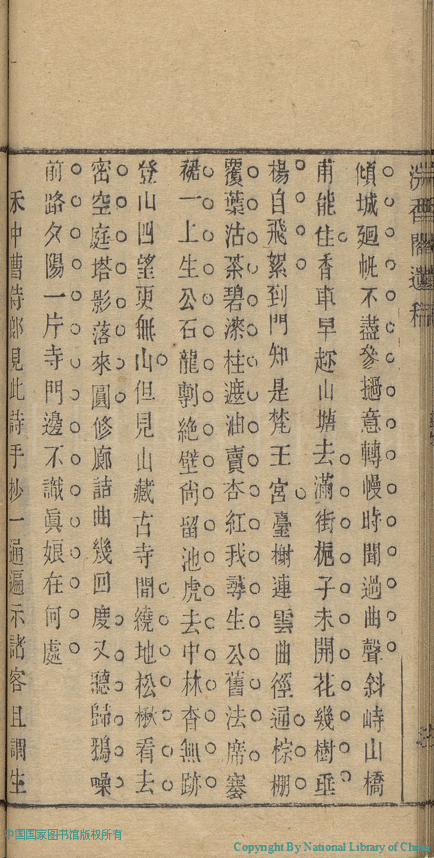 傾城廻帆不盡參撾意轉慢時聞過曲聲斜峙山橋
甫能住香車早趂山塘去滿街梔子未開花幾樹垂
楊自飛絮到門知是梵王宮臺榭連雲曲徑通椶棚
覆葉沽茶碧漆柱遮油賣杏紅我尋生公舊法席蹇
裙一上生公石龍剸絶壁尙留池虎去中林杳無跡
登山四望更無山但見山藏古寺間繞地松楸看去
密空庭塔影落來圓修廊詰曲幾回慶又聽歸鴉噪
前路夕陽一片寺門邊不識眞娘在何處
禾中曹侍郎見此詩手抄一通遍示諸客且謂生
中国国家图书馆版权所有
Copyright By National Library of China